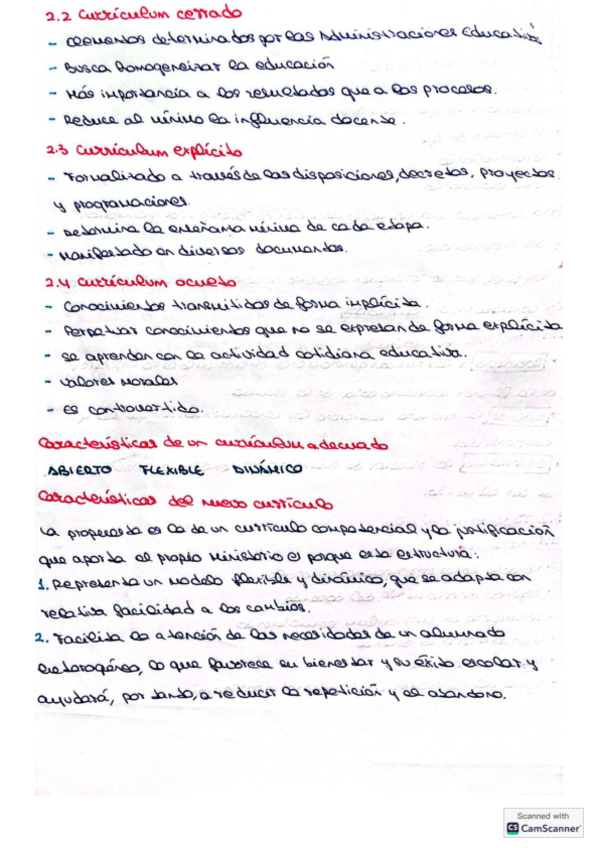 2.2 Currículum cerrado
- Elementos determinados por las Administraciones Educativas
- Busca homogeneizar la educación
- Más importancia a los resultados que a los procesos.
- Reduce al mínimo la influencia docente.
2.3 Currículum explícito
- Formalizado a través de las disposiciones, decretos, proyectos
y programaciones.
- Determina la enseñanza mínima de cada etapa.
- Manifestado en diversos documentos.
2.4 Currículum oculto
- Conocimientos transmitidos de forma implícita.
- Perpetuar conocimientos que no se expresan de forma explícita
- Se aprenden con la actividad cotidiana educativa.
- Valores morales
- Es controvertido.
Características de un currículum adecuado
ABIERTO FLEXIBLE DINÁMICO
Características del nuevo currículo
La propuesta es la de un currículo competencial y la justificación
que aporta el propio Ministerio es porque esta estructura:
1. Representa un modelo flexible y dinámico, que se adapta con
relativa facilidad a los cambios.
2. Facilita la atención de las necesidades de un alumnado
heterogéneo, lo que favorece su bienestar y su éxito escolar y
ayudará, por tanto, a reducir la repetición y el abandono.
Scanned with
CS CamScanner